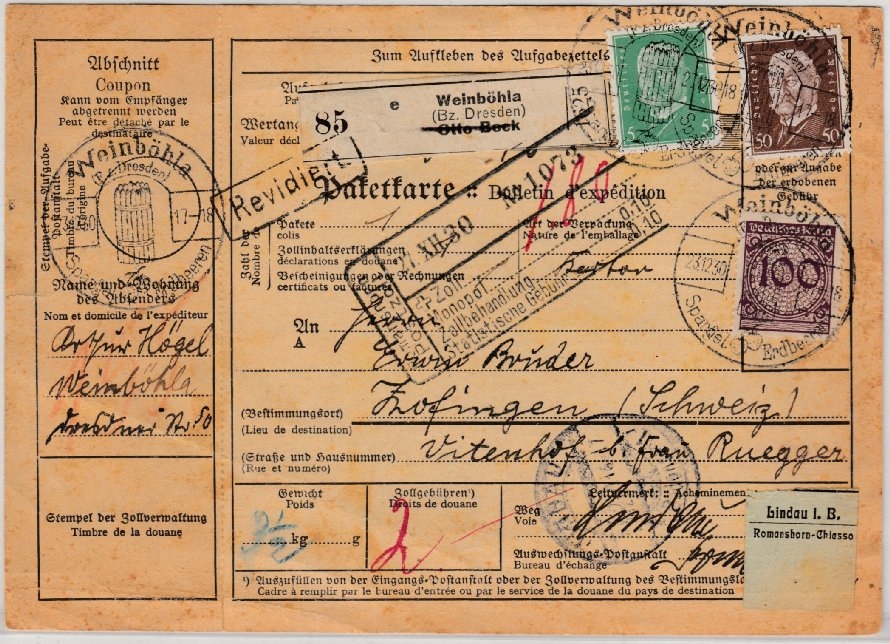 Abschnitt
Coupon
Kann vom Empfänger
abgetrennt werden
Peut être détaché par le
destinataire
Weinböhla
(Bz. Dresden)
17-18
Stempel der Aufgabe-
Postanstalt
Timbre du bureau
d'origine
Name und Wohnung
des Absenders
Nom et domicile de l'expéditeur
Arthur Högel
Weinböhla
Dresdner Str. 50
Stempel der Zollverwaltung
Timbre de la douane
Zum Aufkleben des Aufgabezettels
Wertang
Valeur décl
85
e Weinböhla
(Bz. Dresden)
Otto Bock
Revidiert
Paketkarte :: Bulletin d'expédition
180
Zahl der
Nombre de
Pakete
colis
1
Zollinhaltserklärungen
déclarations en douane
Bescheinigungen oder Rechnungen
certificats ou factures
Art der Verpackung
Nature de l'emballage
Karton
XII.30
1073
Zoll
Monopol
Zollbehandlung
Statistische Gebühr
0.10
10
An
A
Herrn
Erwin Bruder
(Bestimmungsort)
(Lieu de destination)
Zofingen (Schweiz)
(Straße und Hausnummer)
(Rue et numéro)
Vitenhof b. Frau Ruegger
Gewicht
Poids
kg
g
Zollgebühren¹)
Droits de douane
2
Leitvermerk: :: Acheminement
Weg
Voie
Auswechslungs-Postanstalt
Bureau d'échange
Lindau i. B.
Romanshorn-Chiasso
¹) Auszufüllen von der Eingangs-Postanstalt oder der Zollverwaltung des Bestimmungsla
Cadre à remplir par le bureau d'entrée ou par le service de la douane du pays de destination
Weinböhla
(Bz. Dresden)
5
5
Weinböhla
50
50
oder zur Angabe
der erhobenen
Gebühr
Weinböhla
23.12.30
Deutsches Reich
100
Spargel
Erdbeeren